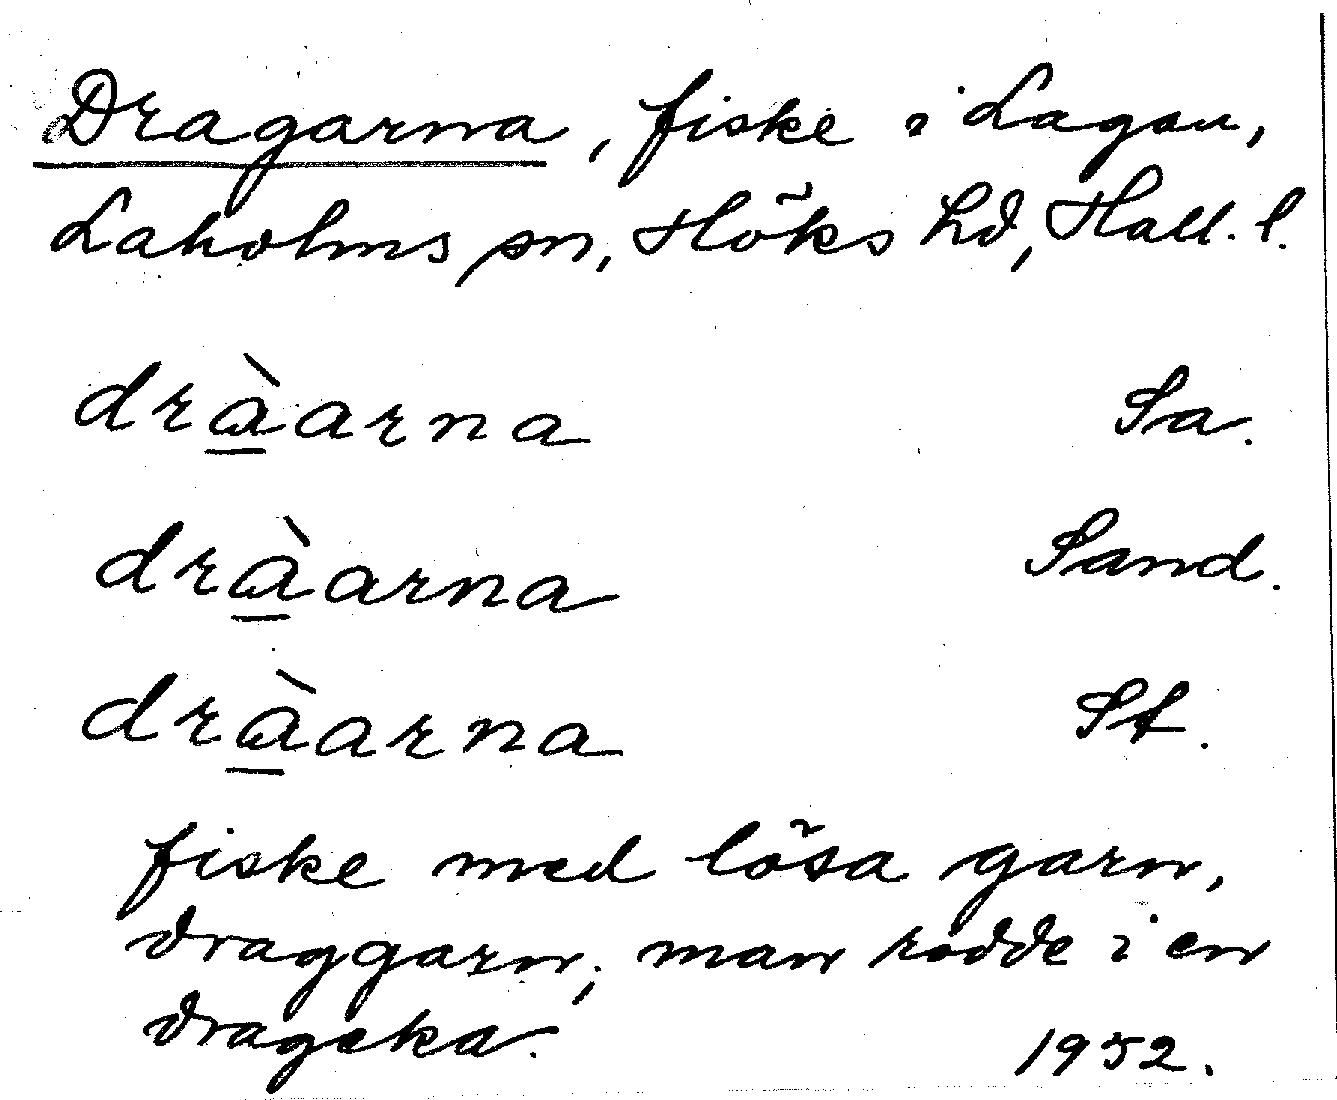 Dragarna, fiske i Lagan,
Laholms sn, Höks hd, Hall. l.
dràarna Sa.
dràarna Sand.
dràarna St.
fiske med lösa garn,
draggarn; man rodde i en
drageka.
1952.